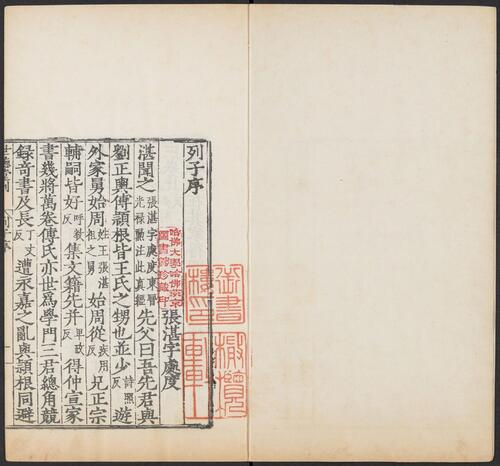 列子序
張湛字處度
湛聞之張湛字處度東晉光祿勳注此真經先父曰吾先君與
劉正輿傅頴根皆王氏之甥也並少詩照反遊
外家舅始周始姓王張湛周祖之舅始周從疾用反兄正宗
輔嗣皆好呼報反集文籍先并卑政反得仲宣家
書幾將萬卷傅氏亦世為學門三君總角競
錄奇書及長丁丈反遭永嘉之亂與頴根同避
哈佛大學哈佛燕京
圖書館珍藏印